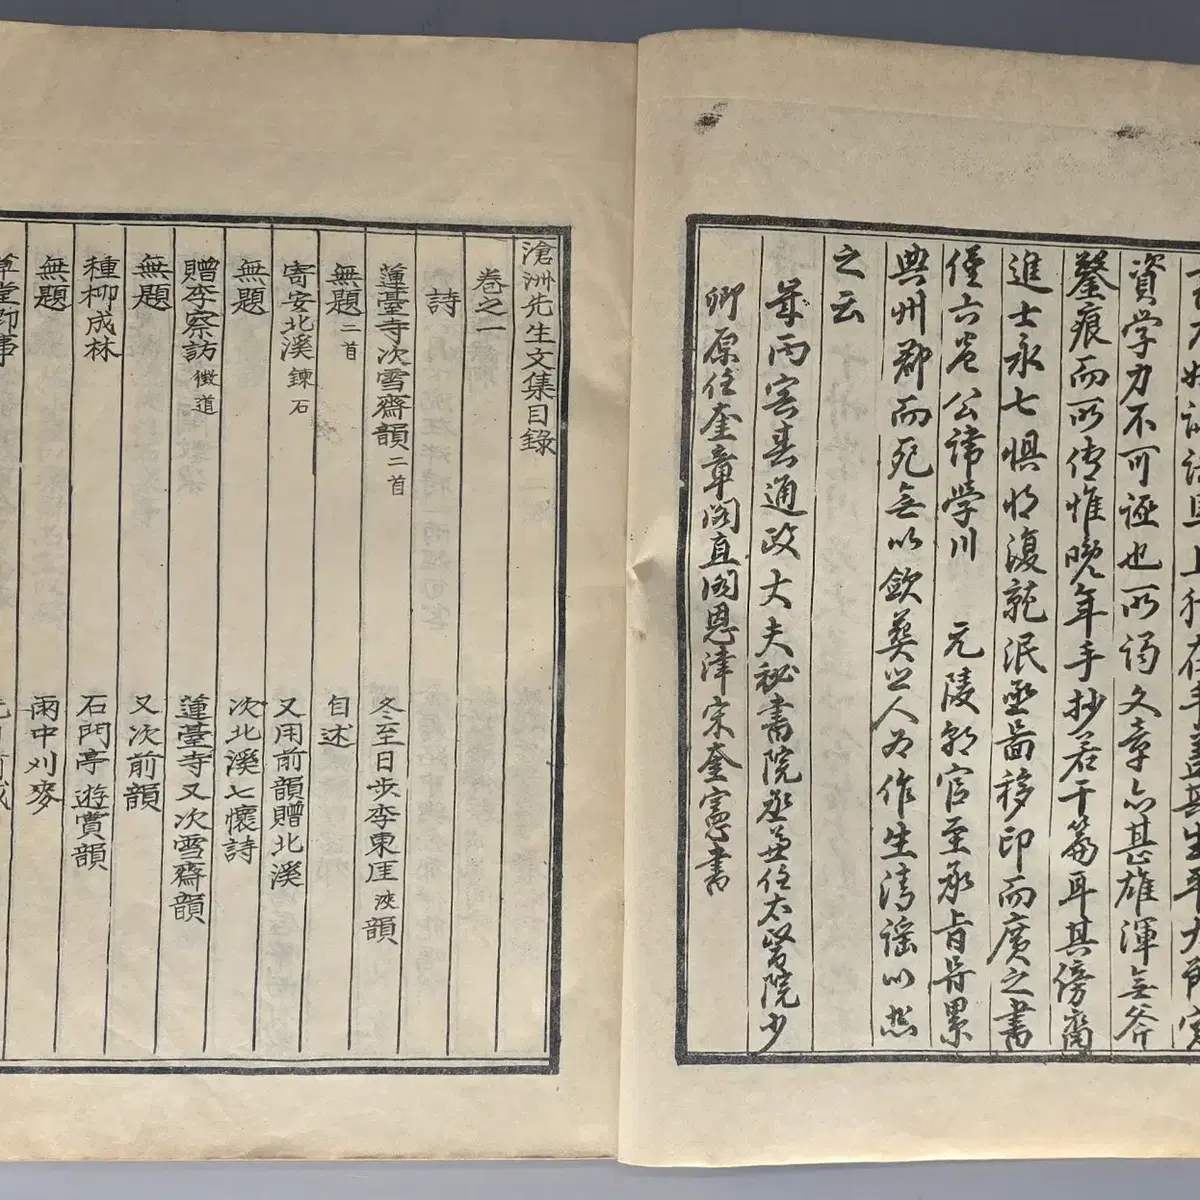 資学力不可誣也所謂文章亦甚雄渾無斧
鑿痕而所傳惟晩年手抄若干篇耳其傍裔
進士永七懼切復就泯亟啚移印而廣之書
僅六卷公諱學川 元陵朝官至承旨背累
典州郡而死無以斂葬比人為作生清謠以
之云
丙害春通政大夫秘書院丞兼任太醫院少
卿原任奎章閣直閣恩津宋奎憲書
滄洲先生文集目錄
卷之一
詩
蓮臺寺次雪齋韻二首 冬至日步李東匡浹韻
無題二首 自述
寄安北溪鍊石 又用前韻贈北溪
無題 次北溪七懷詩
贈李察訪徵道 蓮臺寺又次雪齋韻
無題 又次前韻
種柳成林 石門亭遊賞韻
無題 雨中刈麥
草堂即事